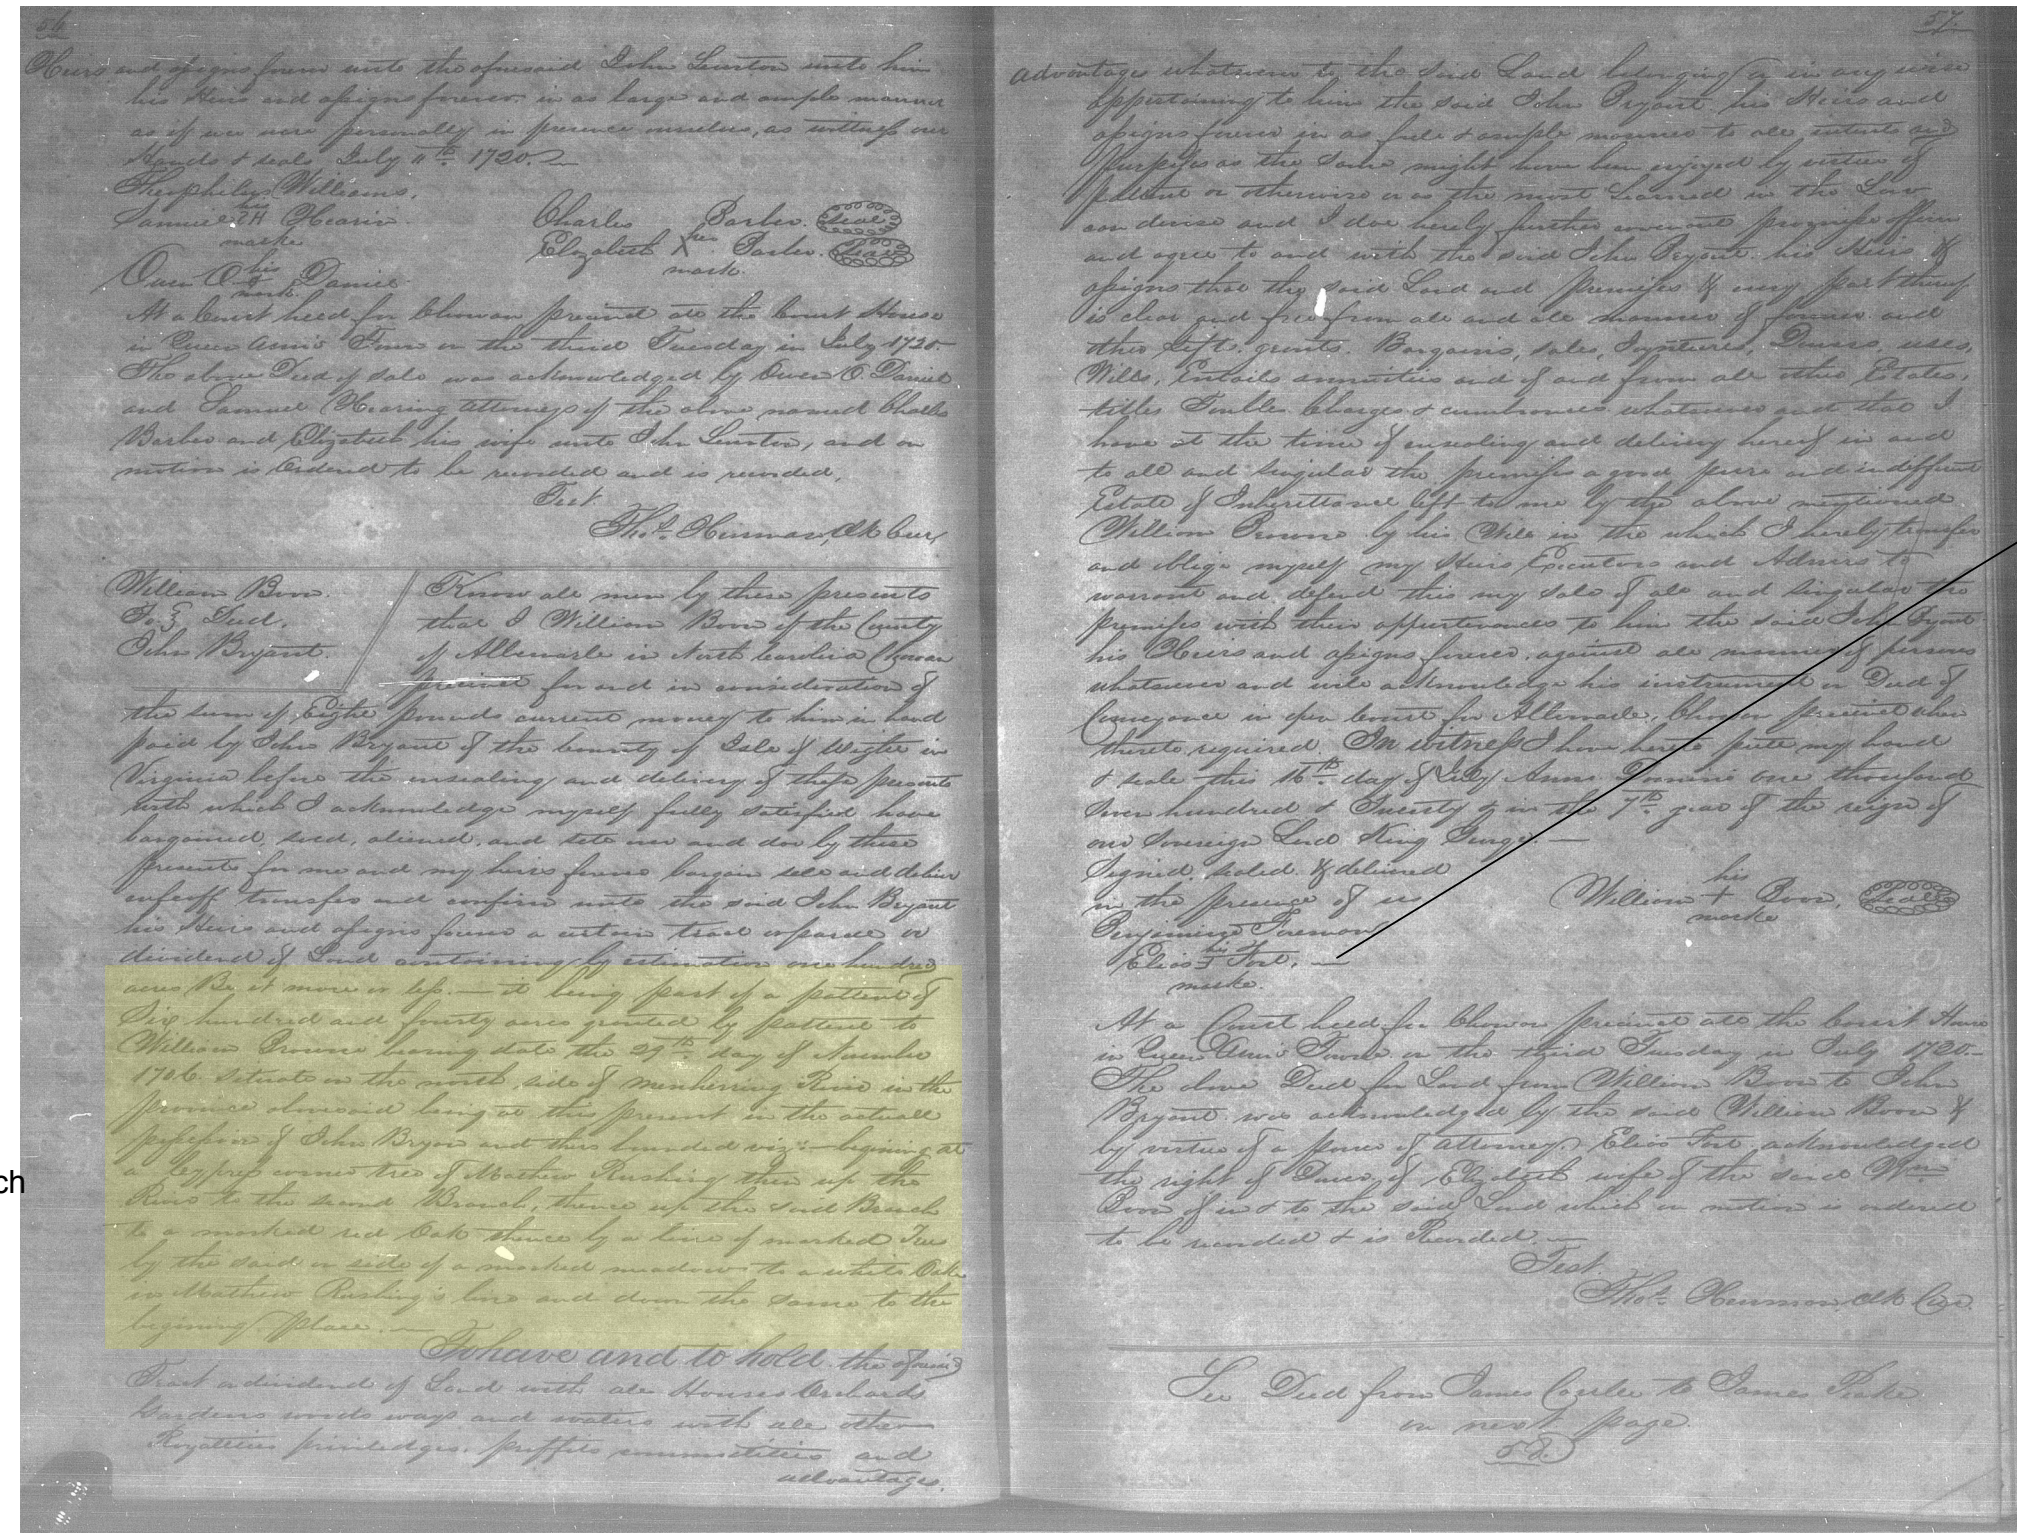 56
Heirs and assigns forever unto the aforesaid John Lewston unto him
his Heirs and assigns forever in as large and ample manner
as if we were personally in presence ourselves, as wittness our
Hands & seals July 11th 1720.
Theophilus Williams.
Samuel his H Hearin
marke
Charles Barber. Seal
Elizabeth X her Barber. Seal
mark
Owen O his Daniel
mark
At a Court held for Chowan precinct att the Court House
in Queen Anns Town on the third Tuesday in July 1720
The above Deed of Sale was acknowledged by Owen O. Daniel
and Samuel Hearing attorneys of the above named Charles
Barber and Elizabeth his wife unto John Lewston, and on
motion is Ordered to be recorded and is recorded,
Test
Thos. Henman, Clk Cur
William Boon.
To Deed.
John Bryant.
Know all men by these presents
that I William Boon of the County
of Albemarle in North Carolina Chowan
precinct for and in consideration of
the sum of Eight pounds current money to him in hand
paid by John Bryant of the County of Isle of Wight in
Virginia before the ensealing and delivery of these presents
with which I acknowledge myself fully satisfied have
bargained, sold, aliened, and sett over and doe by these
presents for me and my heirs forever bargain sell and deliver
enfeoff transfer and confirm unto the said John Bryant
his Heirs and assigns forever a certain tract or parcel or
dividend of Land containing by estimation one hundred
acres Be it more or less. — it being part of a pattent of
Six hundred and fourty acres granted by pattent to
William Browne bearing date the 29th day of November
1706 situate on the north side of meherring River in the
province aforesaid being at this present in the actuall
possession of John Bryan and thus bounded viz: — begining at
a Cypress corner tree of Mathew Rushing then up the
River to the second Branch, thence up the said Branch
to a marked red Oak thence by a line of marked Trees
by the said or side of a marked meadow to a white Oake
in Mathew Rushing's line and down the same to the
begining place. —
To have and to hold the aforesaid
Tract or dividend of Land with all Houses Orchards
Gardens woods ways and waters with all other
Royalties priviledges, proffits commodities and
advantages.
57.
advantages whatsoever to the said Land belonging or in any wise
appertaining to him the said John Bryant his Heirs and
assigns forever in as full & ample manner to all intents and
purposes as the same might have been enjoyed by virtue of
pattent or otherwise or as the most Learned in the Law
can devise and I doe hereby further covenant promise affirm
and agree to and with the said John Bryant his Heirs &
assigns that the said Land and premises & every part thereof
is clear and free from all and all manner of former and
other Gift. grants. Bargains, sales, Joyntures, Dowers, uses,
Wills, Entails annuities and of and from all other Estates,
titles Toubles Charges & cumbrances whatsoever and that I
have at the time of ensealing and delivery hereof in and
to all and singular the premises a good pure and indefficient
Estate of Inherittance left to me by the above mentioned
William Browne by his Will in the which I hereby transfer
and oblige myself my Heirs Executors and Admrs to
warrant and defend this my sale of all and singular the
premises with their appurtenances to him the said John Bryant
his Heirs and assigns forever against all manner of persons
whatsoever and will acknowledge his instrument or Deed of
Conveyance in open Court for Albemarle, Chowan precinct when
thereto required. In witness I have hereto putt my hand
& seale this 16th day of July Anno Domini one thousand
Seven hundred & Twenty & in the 7th year of the reign of
our Sovereign Lord King George. —
Signed, sealed & delivered
in the presence of us
William his + Boon, Seal
marke
Benjamine Foreman
Elias his Fort. —
marke.
At a Court held for Chowan precinct att the Court House
in Queen Anns Towne on the third Tuesday in July 1720 —
The above Deed for Land from William Boon to John
Bryant was acknowledged by the said William Boon &
by virtue of a power of attorney Elias Fort acknowledged
the right of Dower of Elizabeth wife of the said Wm
Boon of in & to the said Land which on motion is ordered
to be recorded & is Recorded. —
Test.
Thos. Henman Clk Cur
See Deed from James to James Peake
on next page.
58.
ch